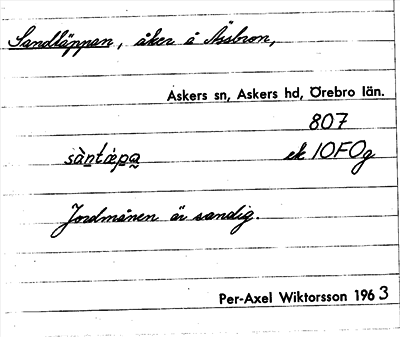 Sandtäppan, åker å Åsbron,
Askers sn, Askers hd, Örebro län.
807
sàntæpa ek 10F0g
Jordmånen är sandig.
Per-Axel Wiktorsson 1963